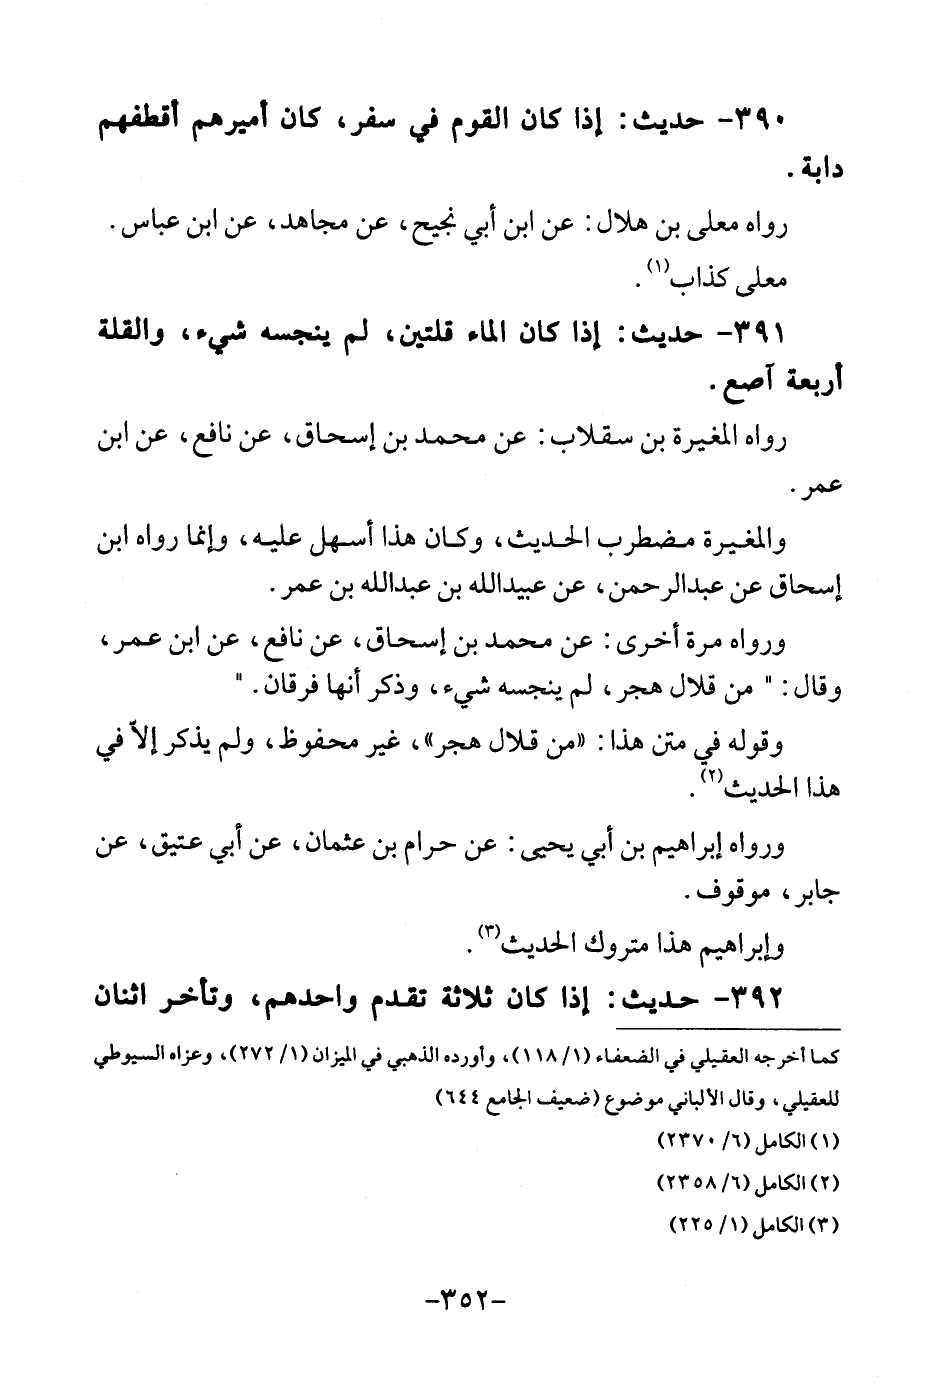 ٣٩٠- حديث: إذا كان القوم في سفر، كان أميرهم أقطفهم
دابة.
رواه معلى بن هلال: عن ابن أبي نجيح، عن مجاهد، عن ابن عباس.
معلى كذاب(١).
٣٩١- حديث: إذا كان الماء قلتين، لم ينجسه شيء، والقلة
أربعة آصع.
رواه المغيرة بن سقلاب: عن محمد بن إسحاق، عن نافع، عن ابن
عمر.
والمغيرة مضطرب الحديث، وكان هذا أسهل عليه، وإنما رواه ابن
إسحاق عن عبدالرحمن، عن عبيدالله بن عبدالله بن عمر.
ورواه مرة أخرى: عن محمد بن إسحاق، عن نافع، عن ابن عمر،
وقال: " من قلال هجر، لم ينجسه شيء، وذكر أنها فرقان. "
وقوله في متن هذا: «من قلال هجر»، غير محفوظ، ولم يذكر إلاّ في
هذا الحديث(٢).
ورواه إبراهيم بن أبي يحيى: عن حرام بن عثمان، عن أبي عتيق، عن
جابر، موقوف.
وإبراهيم هذا متروك الحديث(٣).
٣٩٢- حديث: إذا كان ثلاثة تقدم واحدهم، وتأخر اثنان
كما أخرجه العقيلي في الضعفاء (١/ ١١٨)، وأورده الذهبي في الميزان (١/ ٢٧٢)، وعزاه السيوطي
للعقيلي، وقال الألباني موضوع (ضعيف الجامع ٦٤٤)
(١) الكامل (٦/ ٢٣٧٠)
(٢) الكامل (٦/ ٢٣٥٨)
(٣) الكامل (١/ ٢٢٥)
-٣٥٢-